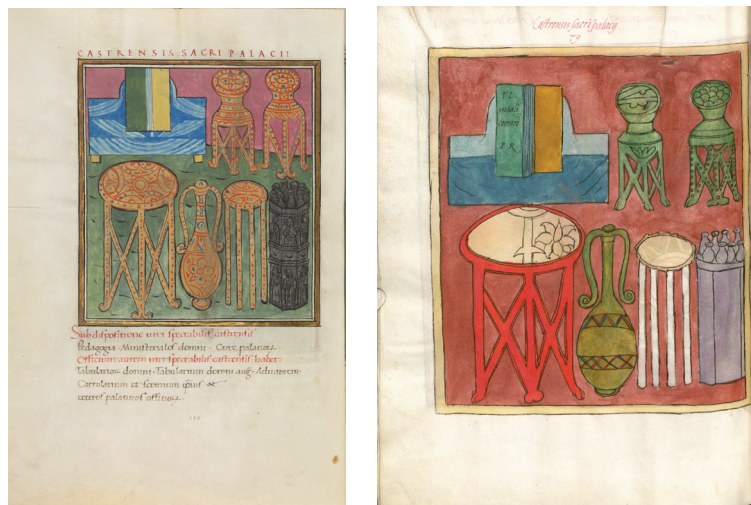 CASTRENSIS SACRI PALACII
Sub dispositione viri spectabilis castrensis
Pedagogia · Ministeriales domini · Cure palatior
Officium autem viri spectabilis castrensis habet:
Tabularior domini · Tabularium domini aug · Adiutorem ·
Cartularium et scrinium ipsius &
ceteros palatinos officior.
Castrensis sacri palacij
79
FL